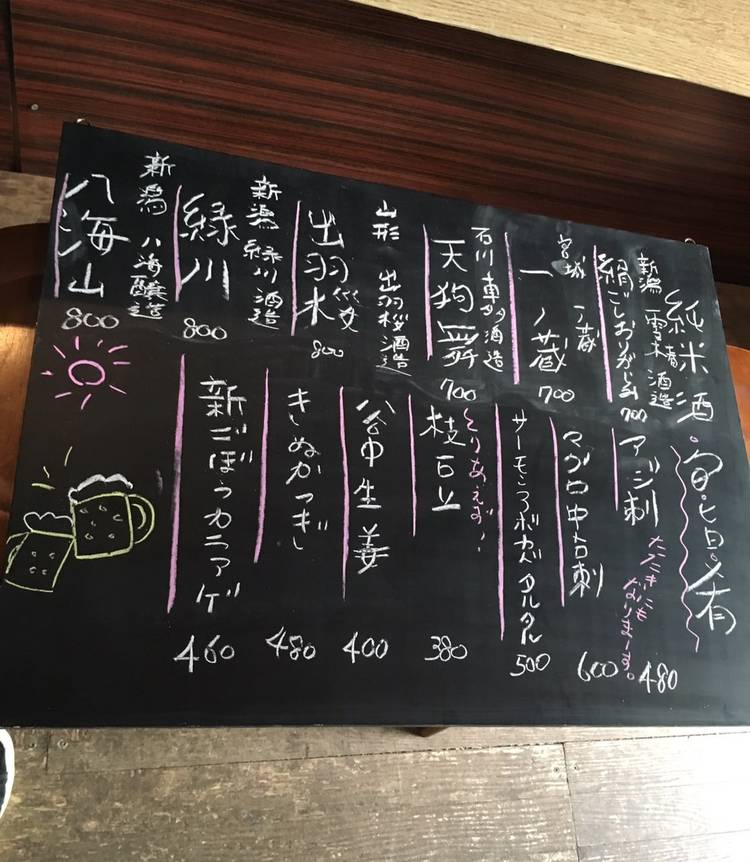 純米酒
新潟 雪椿酒造
絹ごしおりがらみ
700
宮城 一ノ蔵
一ノ蔵
700
石川 車多酒造
天狗舞
700
山形 出羽桜酒造
出羽桜
800
新潟 緑川酒造
緑川
800
新潟 八海醸造
八海山
800
旬・旨・肴
アジ刺
たたきにも
なりまーす。
480
マグロ中トロ刺
600
サーモンアボカドタルタル
500
とりあえず!
枝豆
380
谷中生姜
400
きぬかつぎ
480
新ごぼうカラアゲ
460